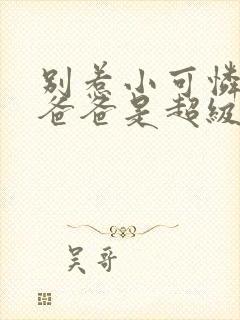 别惹小可憐
爸爸是超級
吴哥